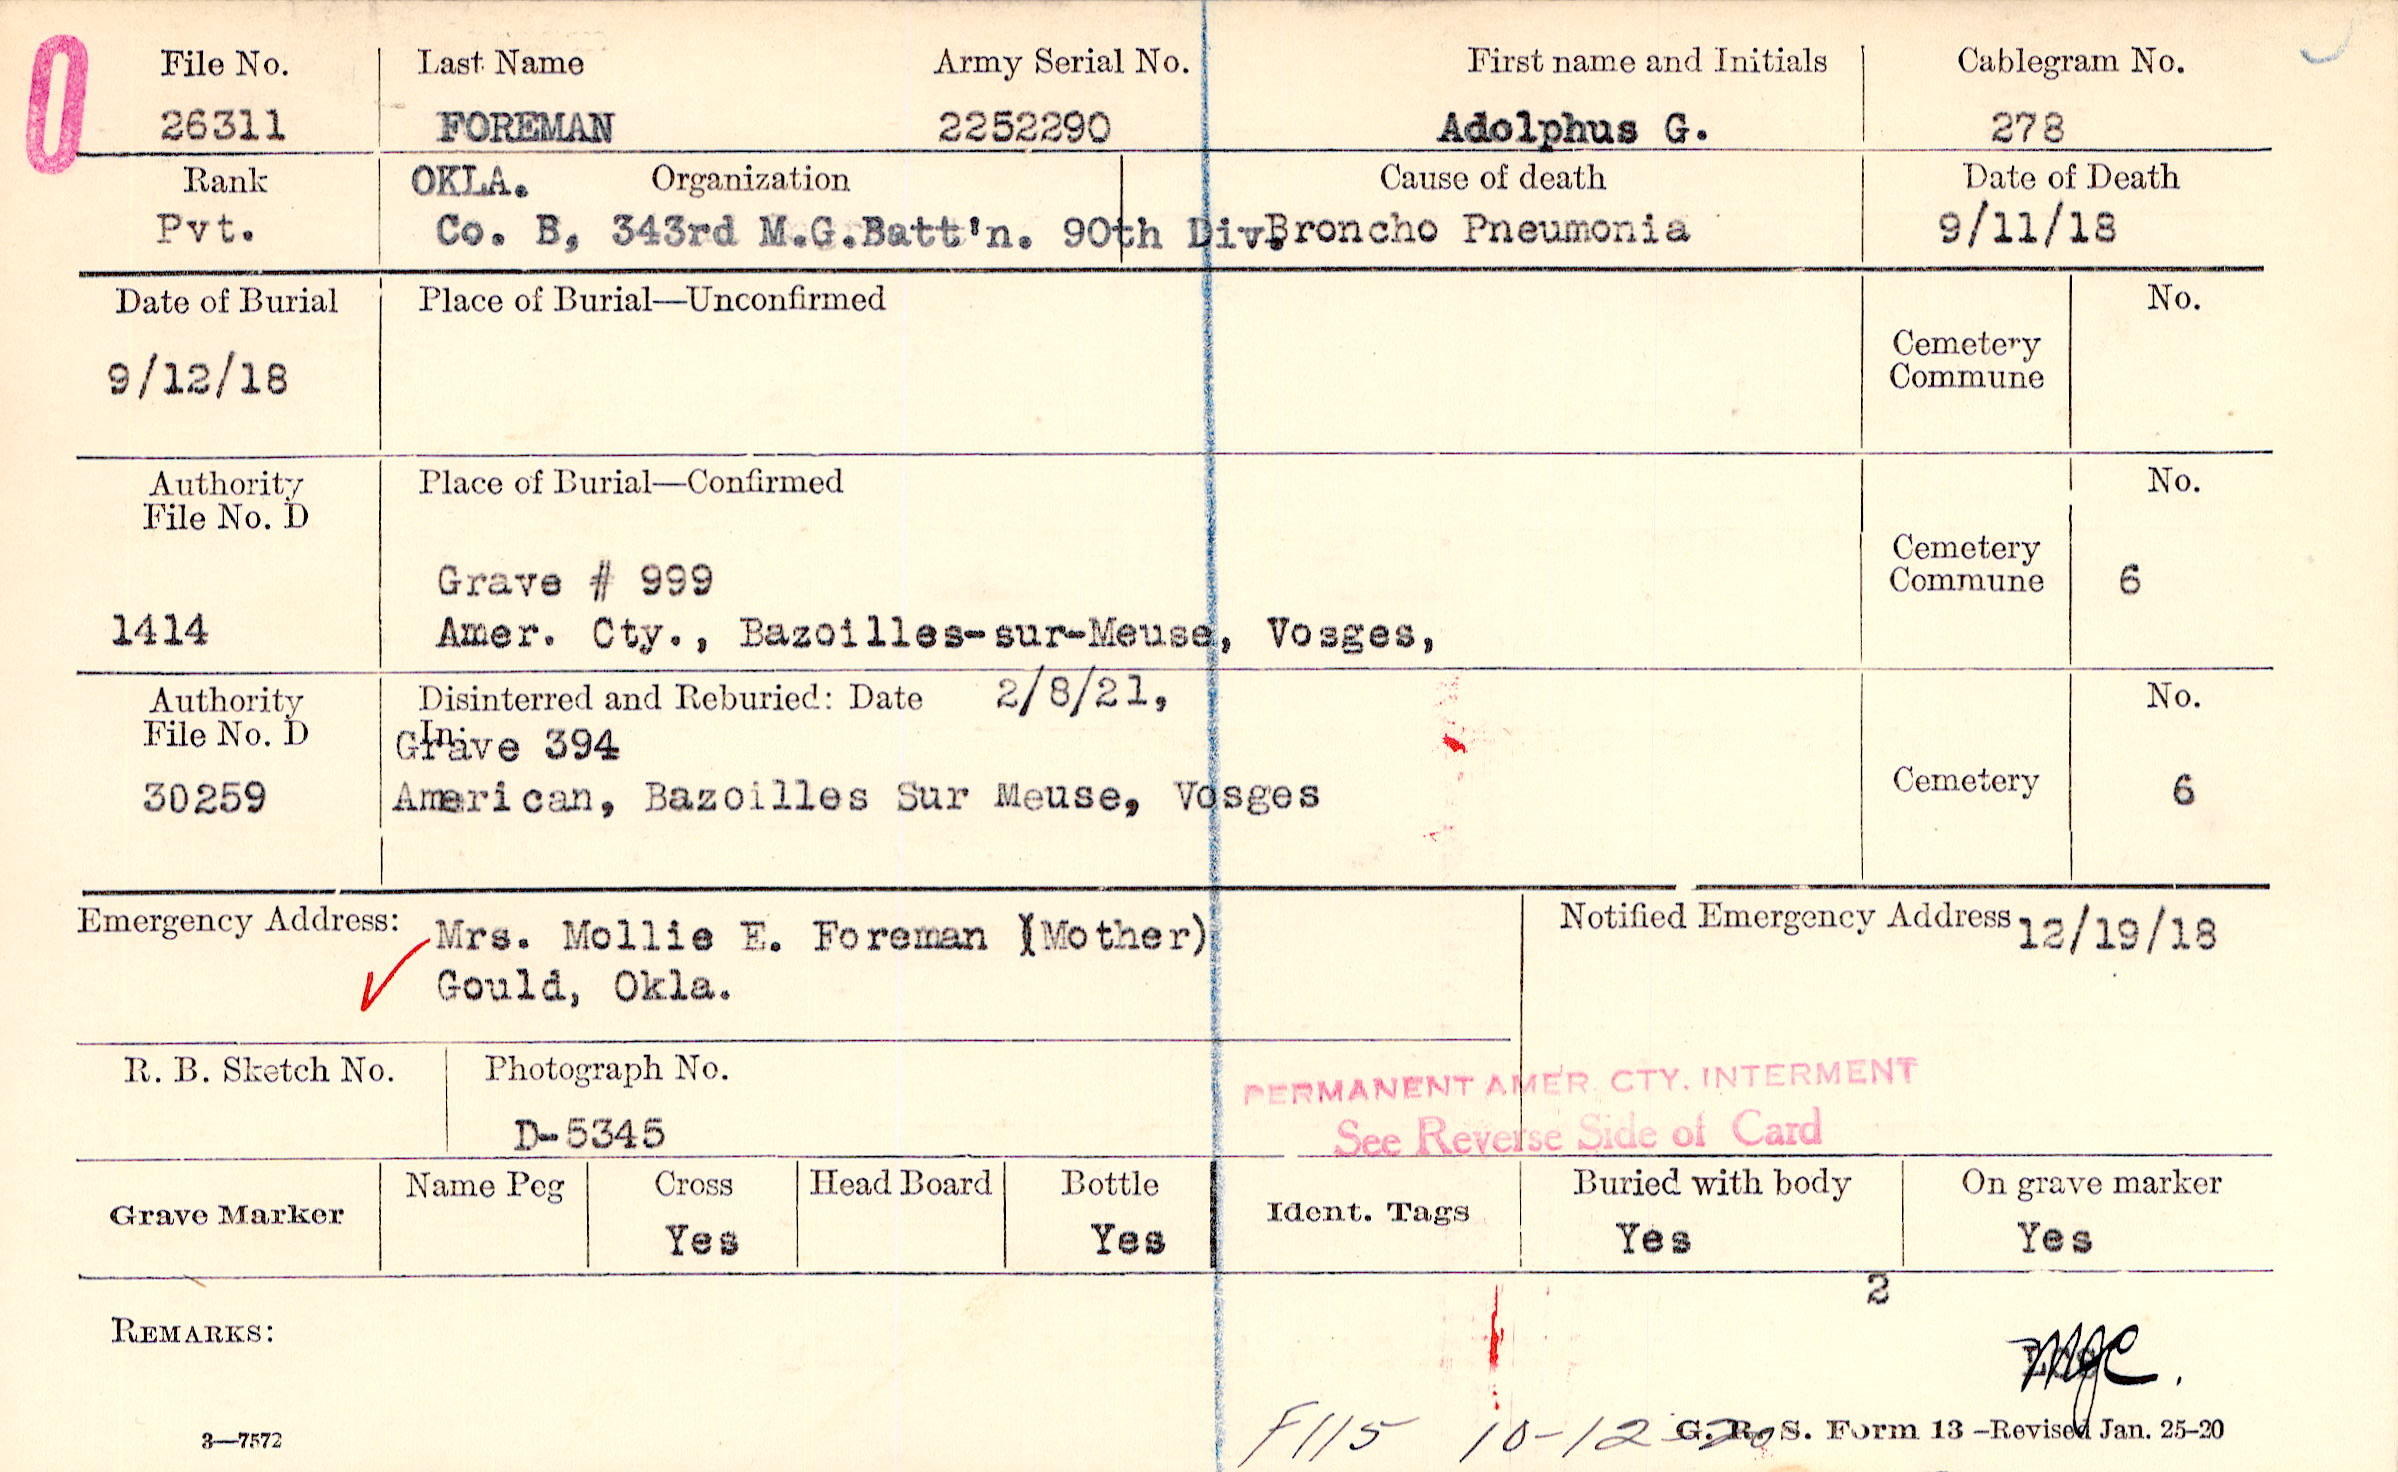 File No. Last Name Army Serial No. First name and Initials Cablegram No.
26311 FOREMAN 2252290 Adolphus G. 278
Rank OKLA. Organization Cause of death Date of Death
Pvt. Co. B, 343rd M.G.Batt'n. 90th Div. Broncho Pneumonia 9/11/18
Date of Burial Place of Burial—Unconfirmed No.
Cemetery
Commune
9/12/18
Authority Place of Burial—Confirmed No.
File No. D
Cemetery
Grave # 999 Commune 6
1414 Amer. Cty., Bazoilles-sur-Meuse, Vosges,
Authority Disinterred and Reburied: Date 2/8/21, No.
File No. D In:
Grave 394
30259 American, Bazoilles Sur Meuse, Vosges Cemetery 6
Emergency Address: Mrs. Mollie E. Foreman (Mother) Notified Emergency Address 12/19/18
Gould, Okla.
R. B. Sketch No. Photograph No.
PERMANENT AMER. CTY. INTERMENT
D-5345 See Reverse Side of Card
Grave Marker Name Peg Cross Head Board Bottle Ident. Tags Buried with body On grave marker
Yes Yes Yes Yes
2
REMARKS:
3—7572 F115 10-12-20 G. R. S. Form 13 —Revised Jan. 25-20